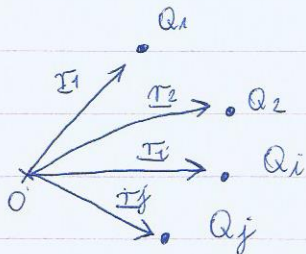 Q1
r1
r2
Q2
ri
Qi
O
rj
Qj